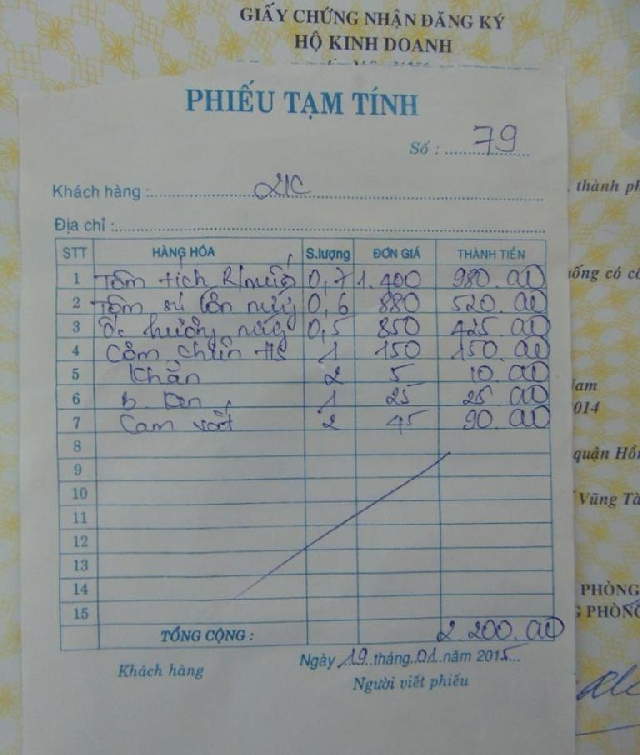 GIẤY CHỨNG NHẬN ĐĂNG KÝ
HỘ KINH DOANH
PHIẾU TẠM TÍNH
Số : 79
Khách hàng : 21C
Địa chỉ :
thành ph
STT HÀNG HÓA S.lượng ĐƠN GIÁ THÀNH TIỀN
ống có c
1 Tôm tích 0,7 1.400 980.000
2 Tôm sú lớn nướng 0,6 880 520.000
3 Ốc hương nướng 0,5 850 425.000
4 Cơm chiên HS 1 150 150.000
5 Khăn 2 5 10.000
am
6 1 25 25.000
014
7 Cam vắt 2 45 90.000
8
quận Hồn
9
10
Vũng Tà
11
12
13
14
PHÒNG
15
PHÒNG
TỔNG CỘNG : 2 200.000
Ngày 19 tháng 01 năm 2015
Khách hàng Người viết phiếu